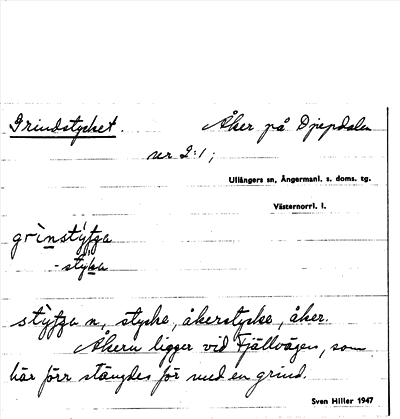 Grindstycket. Åker på Djupdalen
nr 2:1;
Ullångers sn, Ångermanl. s. doms. tg.
Västernorrl. l.
grinstýtja
- styka
stýtja n, stycke, åkerstycke, åker.
Åkern ligger vid Fjällvägen, som
här förr stängdes för med en grind.
Sven Hiller 1947